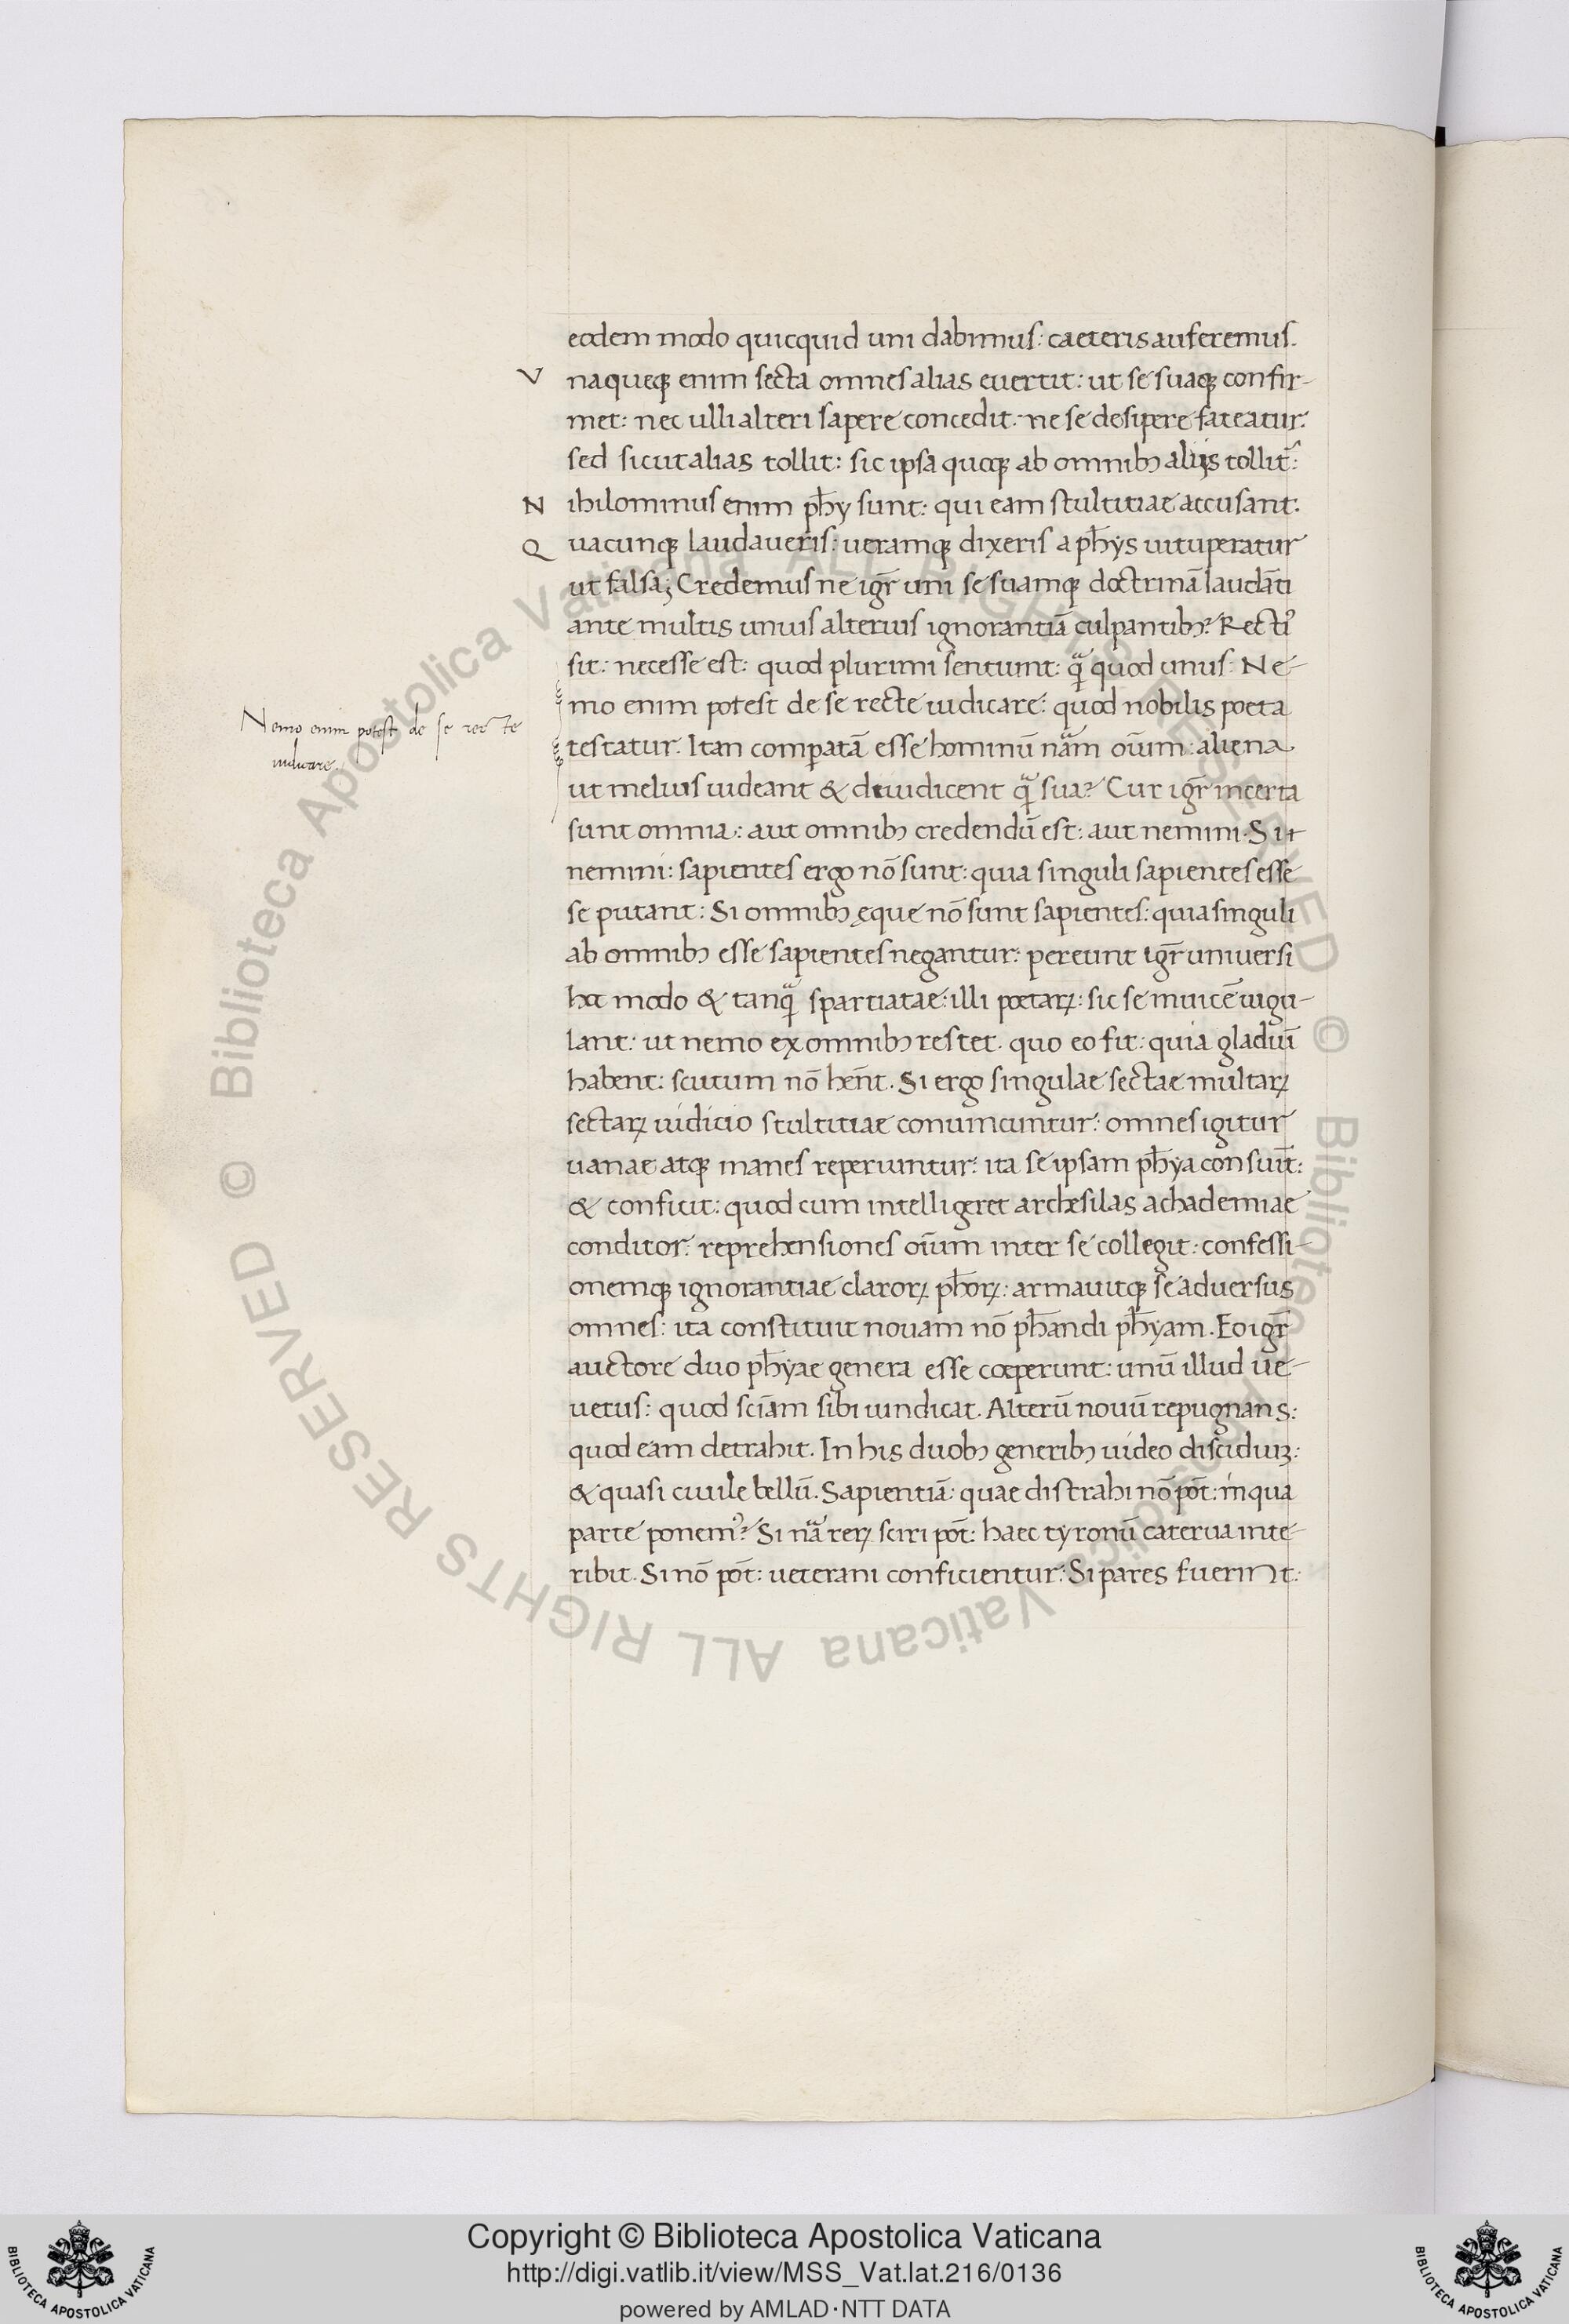 eodem modo quicquid uni dabimus: caeteris auferemus.
V naqueqꝫ enim secta omnes alias euertit: ut se suaqꝫ confir-
met: nec ulli alteri sapere concedit: ne se desipere fateatur:
sed sicut alias tollit: sic ipsa quoqꝫ ab omnibꝫ aliis tollitᷣ:
N ihilominus enim ph̄y sunt: qui eam stultitiae accusant:
Q uacunqꝫ laudaueris: ueramqꝫ dixeris a ph̄ys uituperatur
ut falsaꝫ Credemus ne igr̄ uni se suamqꝫ doctrinā laudāti
ante multis unius alterius ignorantiā culpantibꝫ? Rectiꝰ
sit: necesse est: quod plurimi sentiunt: qᷓ quod unus: Ne-
mo enim potest de se recte iudicare: quod nobilis poeta
Nemo enim potest de se recte
iudicare.
testatur. Itan comꝑatā esse hominū nāam oīum: aliena
ut melius uideant & diiudicent qᷓ sua? Cur igr̄ incerta
sunt omnia: aut omnibꝫ credendū est: aut nemini. Si
nemini: sapientes ergo nō sunt: quia singuli sapientes esse
se putant: Si omnibꝫ ęque nō sunt sapientes: quia singuli
ab omnibꝫ esse sapientes negantur: pereunt igr̄ uniuersi
hoc modo & tanqᷓ spartiatae: illi poetaꝝ: sic se inuicē iugu-
lant: ut nemo ex omnibꝫ restet. quo eo fit: quia gladiū
habent: scutum nō hēnt. Si ergo singulae sectae multaꝝ
sectaꝝ iudicio stultitiae conuincuntur: omnes igitur
uanae atqꝫ inanes reperiuntur: ita se ipsam ph̄ya consuīt:
& conficit: quod cum intelligeret archesilas achademiae
conditor: reprehensiones oīum inter se collegit: confessi-
onemqꝫ ignorantiae claroꝝ ph̄oꝝ: armauitqꝫ se aduersus
omnes: ita constituit nouam nō ph̄andi ph̄yam. Eo igr̄
auctore duo ph̄yae genera esse coeperunt: unū illud ue-
uetus: quod sciām sibi uindicat. Alterū nouū repugnans:
quod eam detrahit. In his duobꝫ generibꝫ uideo discidiuꝫ:
& quasi ciuile bellū. Sapientiā: quae distrahi nō pōt: in qua
parte ponemꝰ? Si nāa reꝝ sciri pōt: haec tyronū caterua inte-
ribit. Si nō pōt: ueterani conficientur: Si pares fuerint:
© Biblioteca Apostolica Vaticana ALL RIGHTS RESERVED © Biblioteca Apostolica Vaticana ALL RIGHTS RESERVED
Copyright © Biblioteca Apostolica Vaticana
http://digi.vatlib.it/view/MSS_Vat.lat.216/0136
powered by AMLAD·NTT DATA
BIBLIOTECA APOSTOLICA VATICANA
BIBLIOTECA APOSTOLICA VATICANA